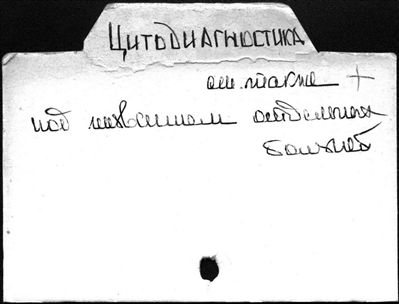 ЦИТОДИАГНОСТИКА
см. также +
под названием отдельных
болезней